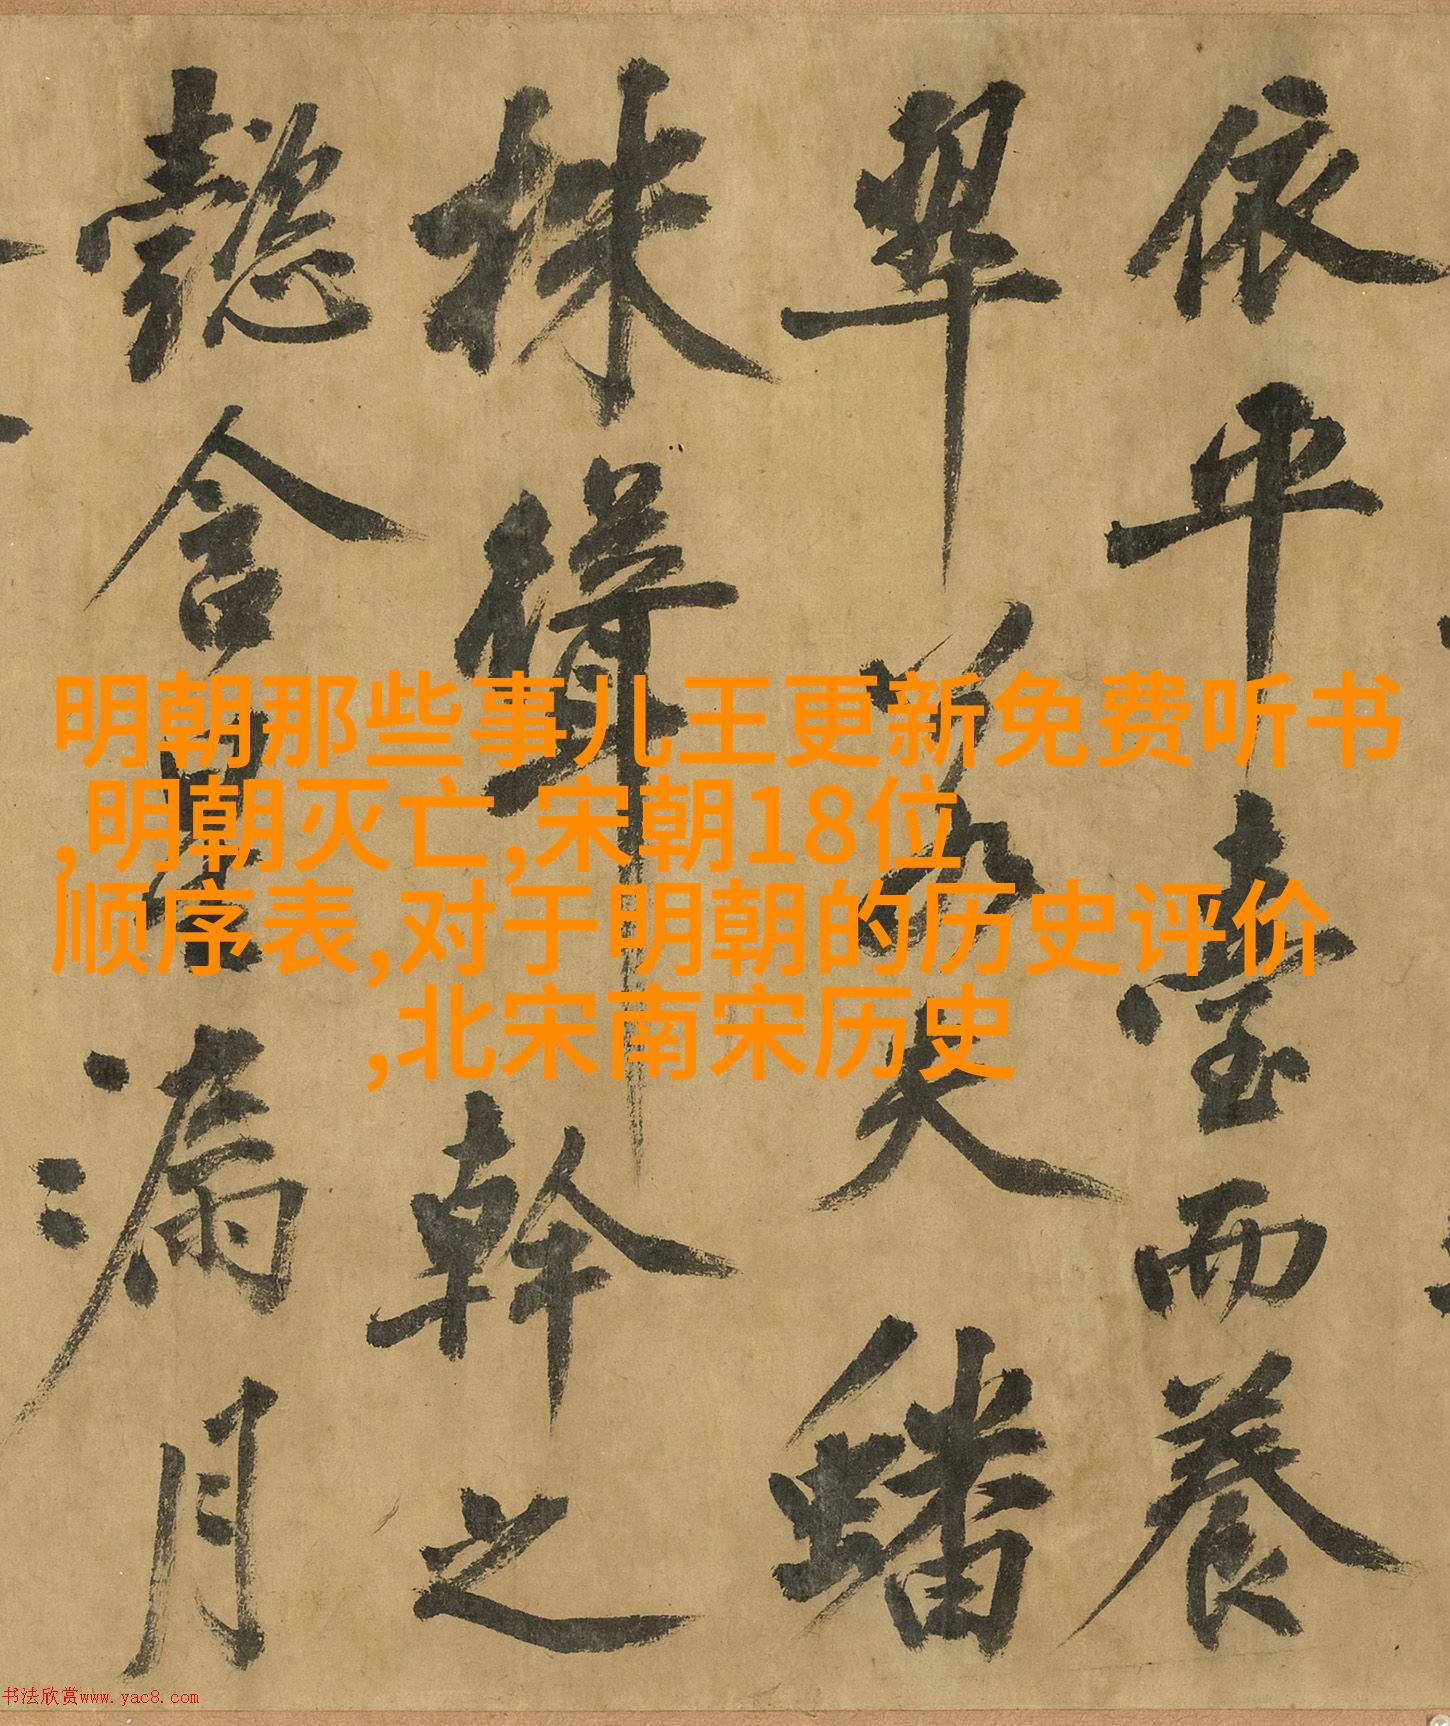 明朝那些事儿王更新免费听书
,明朝灭亡,宋朝18位
顺序表,对于明朝的历史评价
,北宋南宋历史
依平臺而養
翠若夫蟠
株聳幹之
懿含星漏月
书法欣赏www.yac8.com